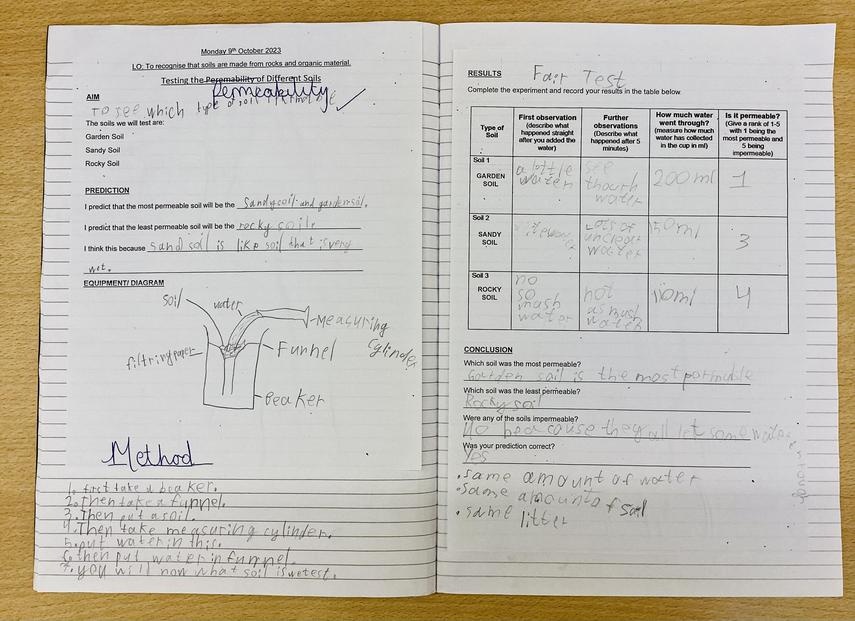 Monday 9th October 2023
LO: To recognise that soils are made from rocks and organic material.
Testing the Peremability of Different Soils
Permeability
AIM
To see which type of soil is
The soils we will test are:
Garden Soil
Sandy Soil
Rocky Soil
PREDICTION
I predict that the most permeable soil will be the Sandy soil and garden soil.
I predict that the least permeable soil will be the rocky soil.
I think this because sand soil is like soil that is very
wet.
EQUIPMENT/ DIAGRAM
soil
water
Measuring
cylinder
filtring paper
Funnel
Beaker
Method
1. first take a beaker.
2. Then take a funnel.
3. Then put a soil.
4. Then take measuring cylinder.
5. put water in this.
6. then put water in funnel.
7. you will now what soil is wetest.
RESULTS
Fair Test
Complete the experiment and record your results in the table below.
Type of Soil
First observation (describe what happened straight after you added the water)
Further observations (Describe what happened after 5 minutes)
How much water went through? (measure how much water has collected in the cup in ml)
Is it permeable? (Give a rank of 1-5 with 1 being the most permeable and 5 being impermeable)
Soil 1
GARDEN SOIL
a lottle water
see though water
200 ml
1
Soil 2
SANDY SOIL
Lots of unclear water
150ml
3
Soil 3
ROCKY SOIL
no so mash water
not as much water
110ml
4
CONCLUSION
Which soil was the most permeable?
Garden soil is the most permable
Which soil was the least permeable?
Rocky soil
Were any of the soils impermeable?
No beacause they all let some water
through
Was your prediction correct?
Yes
• same amount of water
• same amounts of soil
• same litter